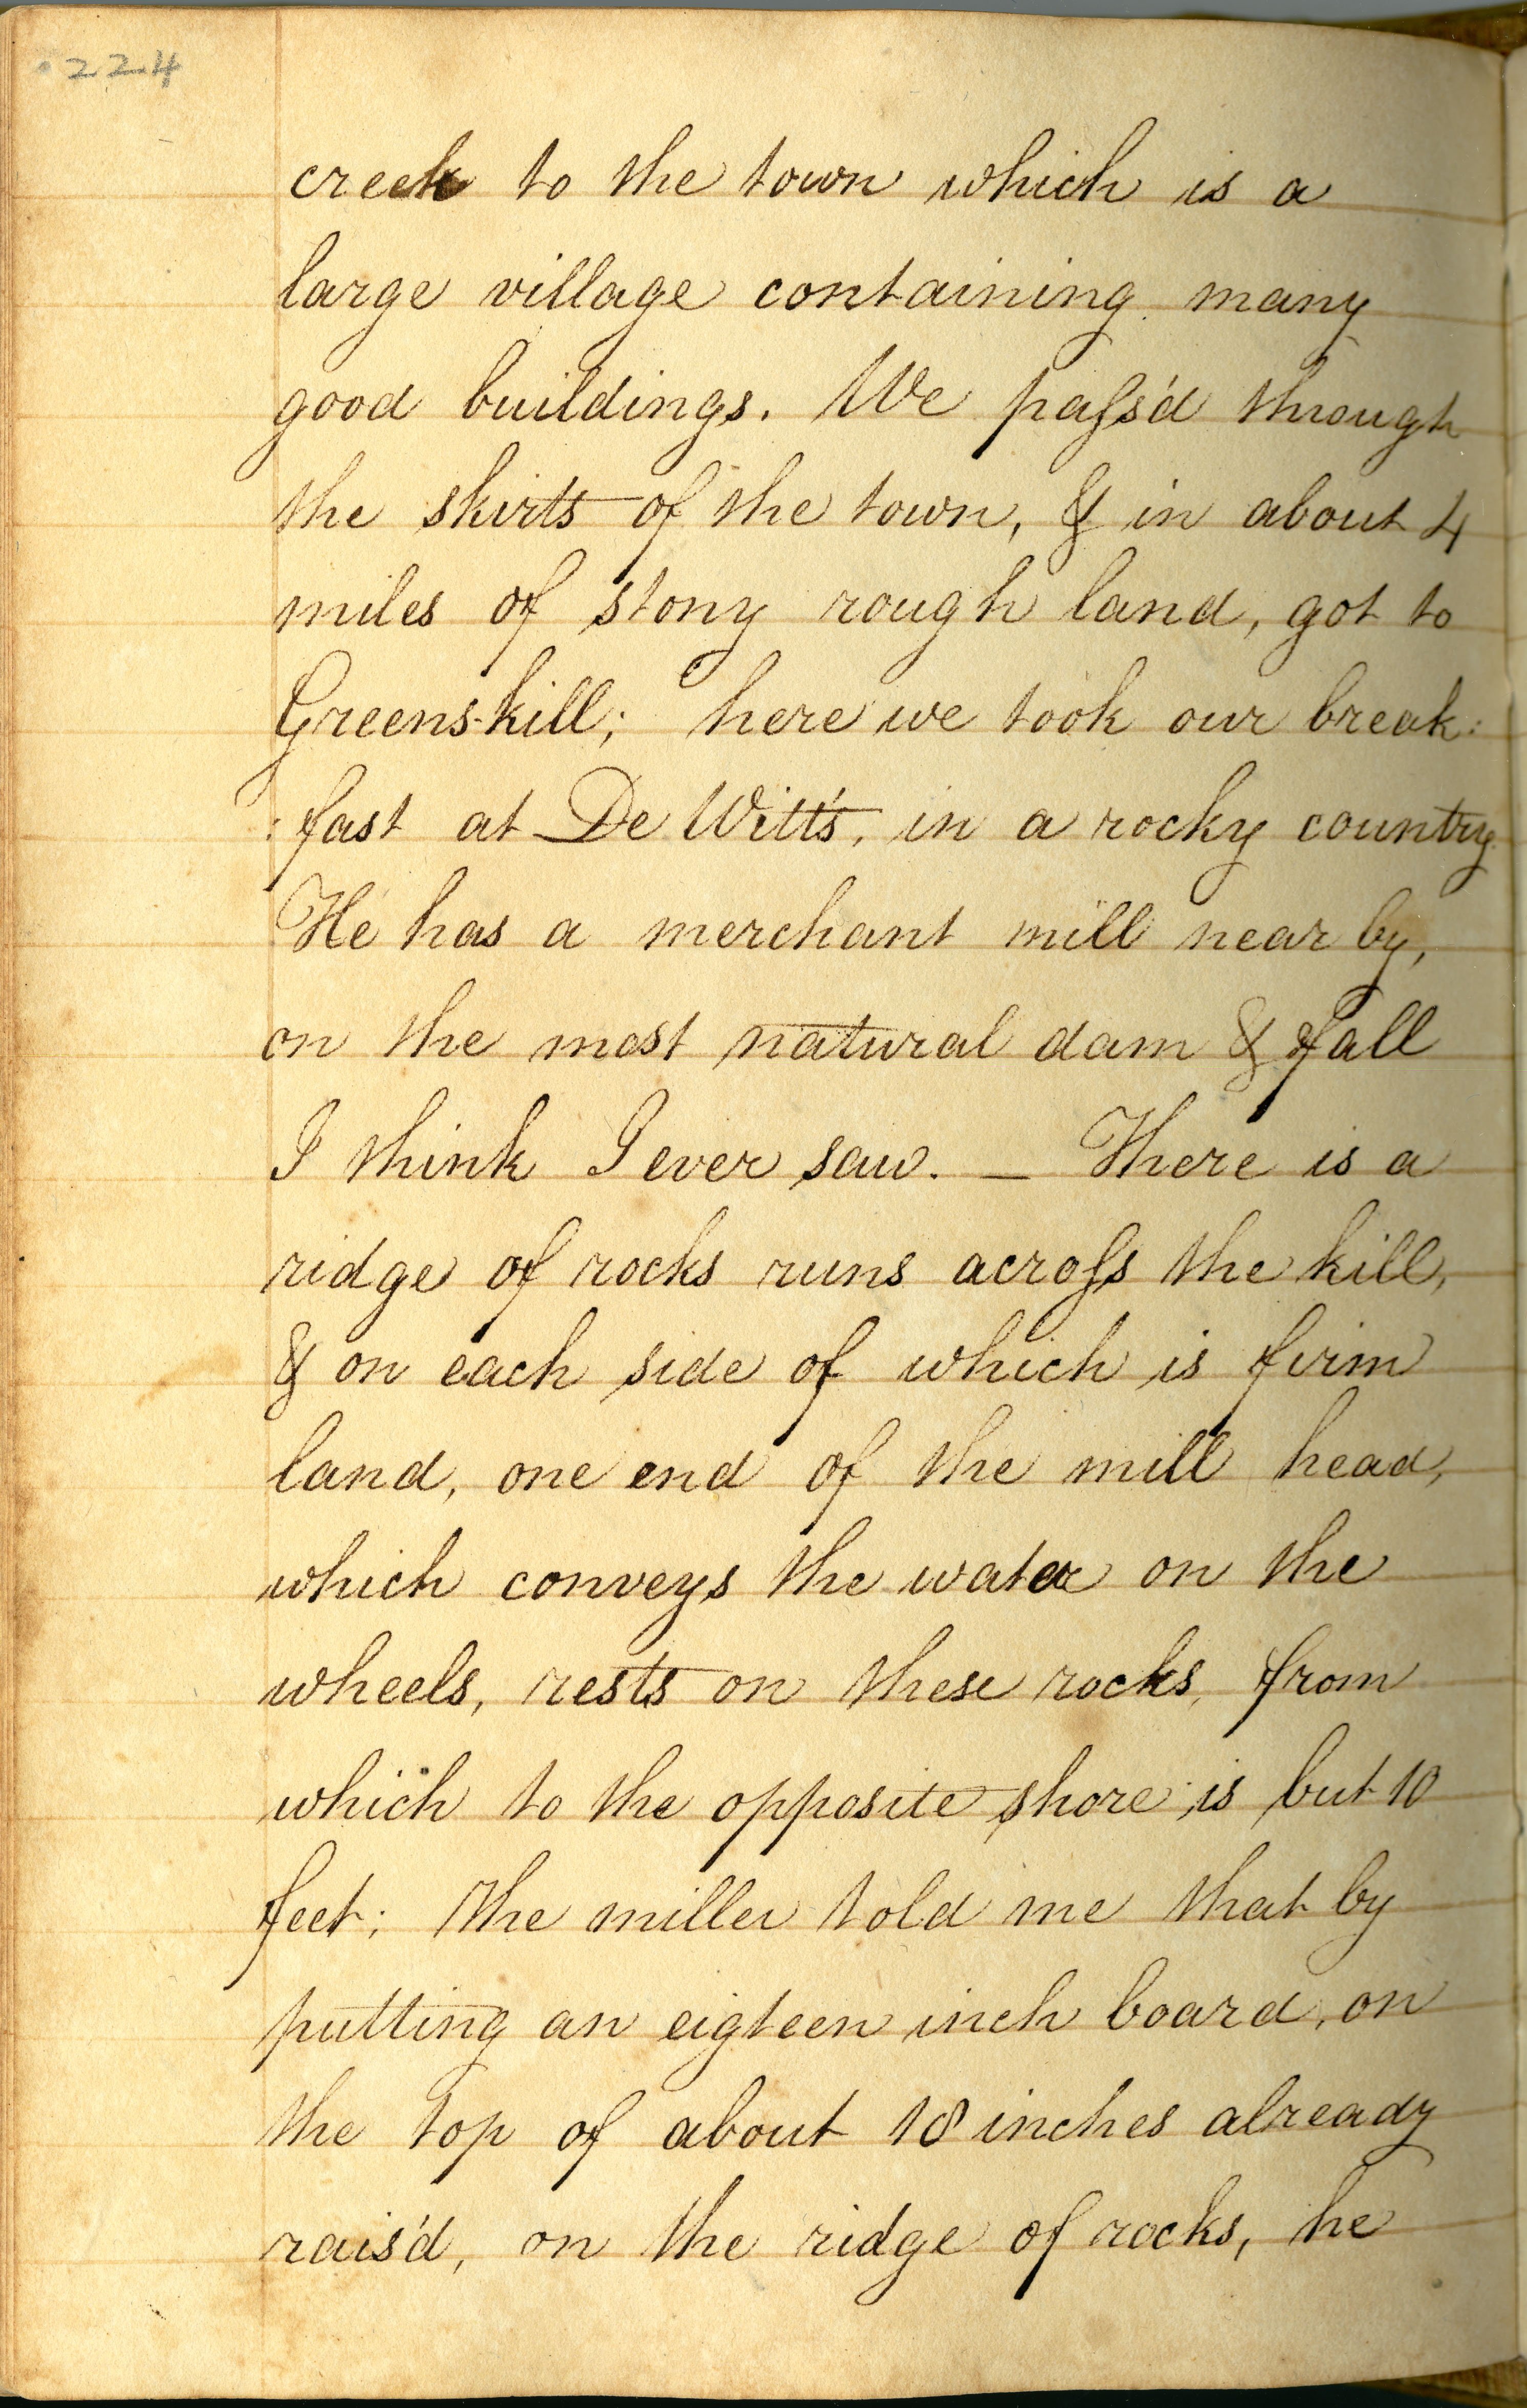 224
creek to the town which is a
large village containing many
good buildings. We paſs'd through
the skirts of the town, & in about 4
miles of stony rough land, got to
Greens-kill; here we took our break:
:fast at De Witt's, in a rocky country.
He has a merchant mill near by,
on the most natural dam & fall
I think I ever saw. — There is a
ridge of rocks runs acroſs the kill,
& on each side of which is firm
land, one end of the mill head,
which conveys the water on the
wheels, rests on these rocks, from
which to the opposite shore is but 10
feet; the miller told me that by
putting an eigteen inch board, on
the top of about 18 inches already
rais'd, on the ridge of rocks, he